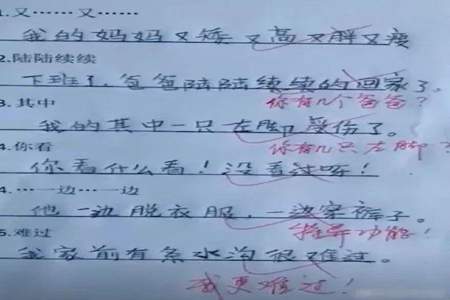 1.又……又……
我的妈妈又矮又高又胖又瘦
2.陆陆续续
下班了,爸爸陆陆续续的回家了。
3.其中
你有几个爸爸?
我的其中一只左脚受伤了。
4.你看
你有几只左脚?
你看什么看!没看过呀!
4.…一边…一边
他一边脱衣服,一边穿裤子。
5.难过
特异功能!
我家前有条水沟很难过。
我更难过!